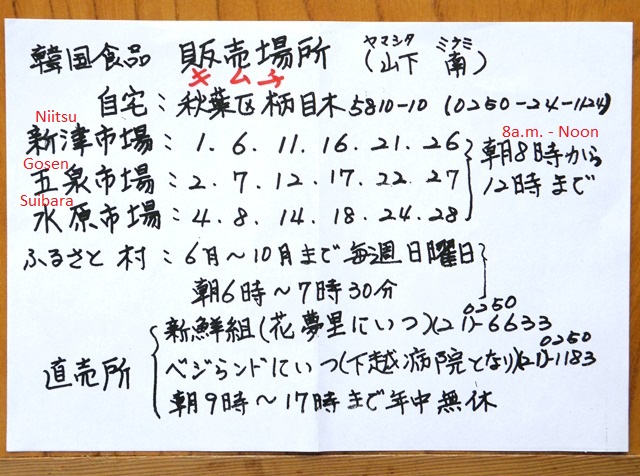 韓国食品 販売場所 (山下 南)
ヤマシタ ミナミ
キムチ
自宅:秋葉区柄目木5810-10 (0250-24-1124)
Niitsu
新津市場:1.6.11.16.21.26
8a.m. - Noon
朝8時から
Gosen
五泉市場:2.7.12.17.22.27
12時まで
Suibara
水原市場:4.8.14.18.24.28
ふるさと村:6月~10月まで毎週日曜日
朝6時~7時30分
0250
新鮮組(花夢里にいつ)(21)-6633
0250
直売所 ベジランドにいつ(下越病院となり)(21)-1183
朝9時~17時まで年中無休